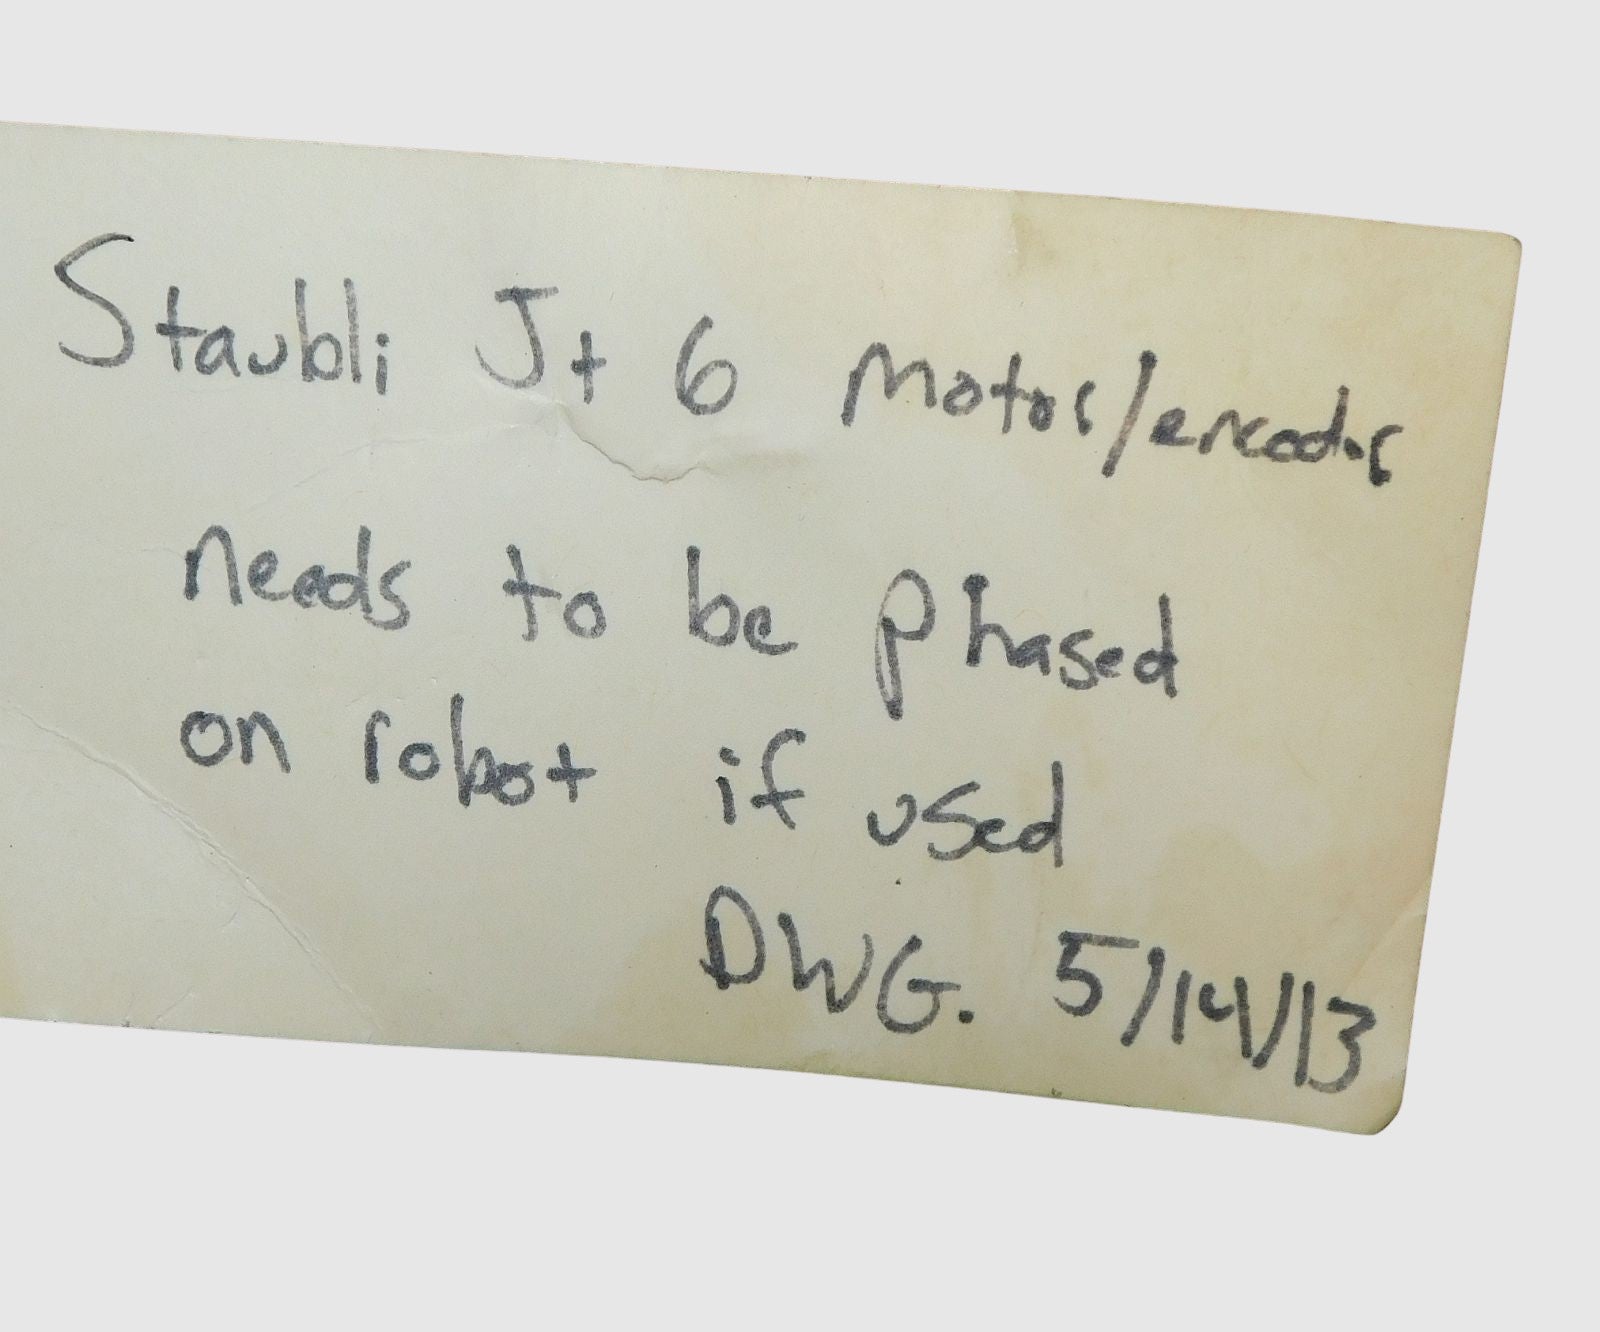 Staubli Jt 6 Motor/encoder
needs to be phased
on robot if used
DWG. 5/14/13